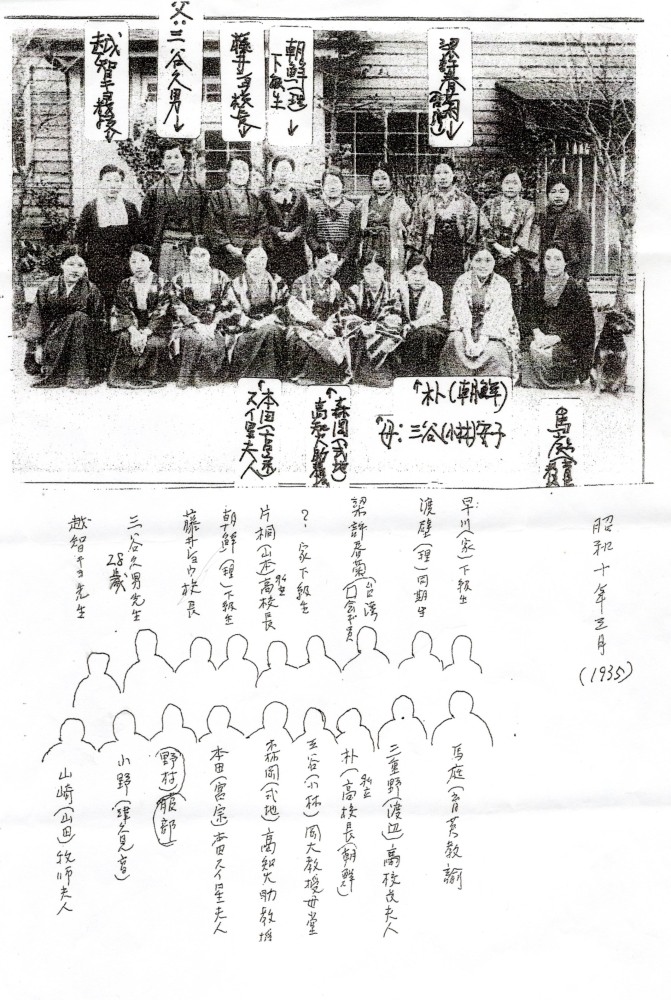 父:三谷久男↓
越智千
藤井
校長
朝鮮(理)
下級生↓
梁許春菊
↑本田(宮宗
スイ星夫人
↑森岡(弍地)
高知大助教授
↑朴(朝鮮)
↑母:三谷(小林)安子
馬庭(育英
昭和十年三月
(1935)
早川(家)下級生
渡壁(理)同期生
梁許春菊(台湾
国会議員
? 家下級生
片桐(山本)高校長
私立
朝鮮(理)下級生
藤井
校長
三谷久男先生
28歳
越智
先生
馬庭(育英教諭
三重野(渡辺)高校長夫人
朴(高校長(朝鮮)
私立
三谷(小林)岡大教授母堂
森岡(弍地)高知大助教授
本田(宮宗 本田スイ星夫人
野村
服部
小野(津久見高)
山崎(山田)牧師夫人